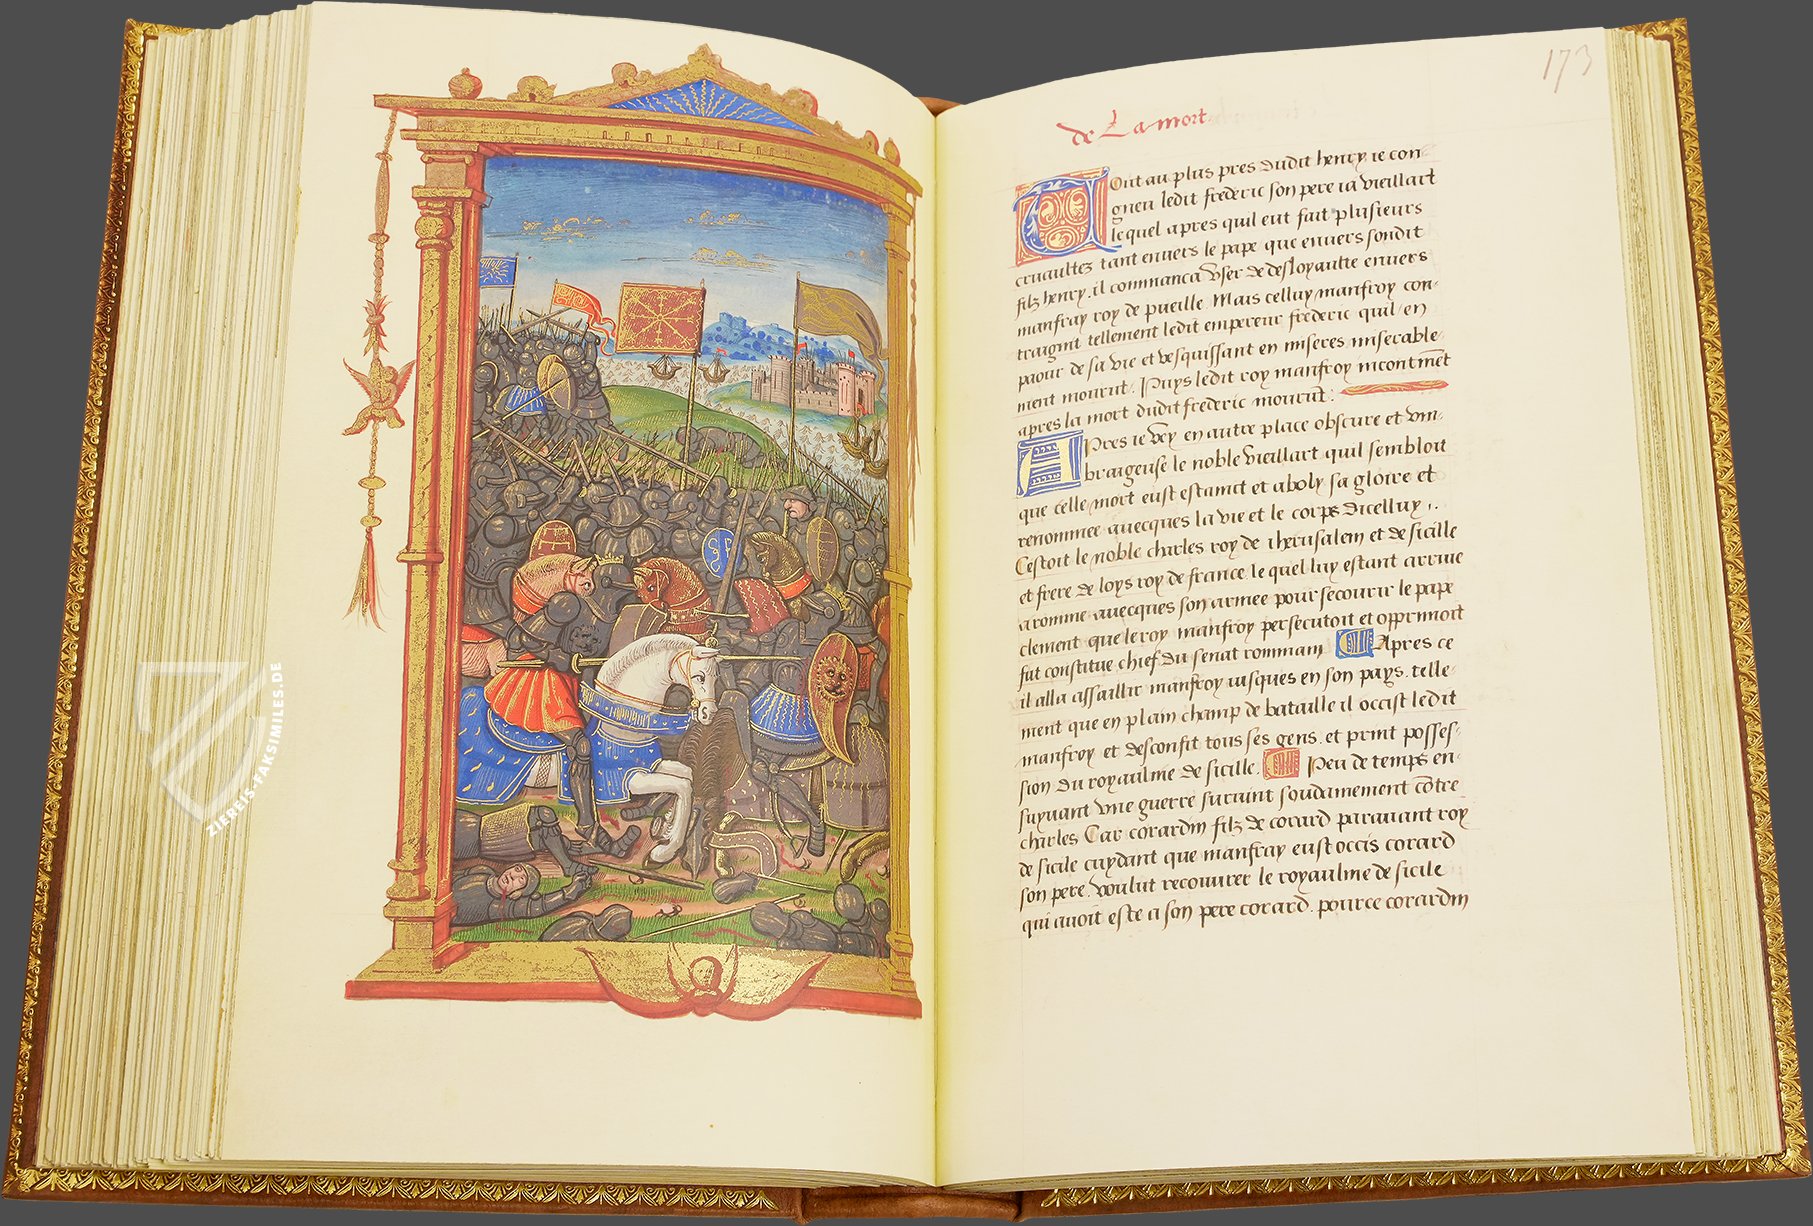 ZIEREIS-FAKSIMILES.DE
173
de La mort
Tout au plus pres dudit henry ie con-
gneu ledit frederic son pere ia vieillart
lequel apres quil eut fait plusieurs
cruaultez tant enuers le pape que enuers sondit
filz henry. il commanca vser de desloyaulte enuers
manfray roy de pueille. Mais celluy manfroy con-
traignit tellement ledit empereur frederic quil en
paour de sa vie et vesquissant en miseres miserable-
ment mourut. Puys ledit roy manfroy incontinẽt
apres la mort dudit frederic mourut.
Apres ie vey en autre place obscure et vm-
braigeuse le noble vieillart quil sembloit
que celle mort eust estainct et aboly sa gloire et
renommee auecques la vie et le corps dicelluy.
Cestoit le noble charles roy de iherusalem et de sicille
et frere de loys roy de france. le quel luy estant arriue
a romme auecques son armee pour secourir le pape
clement que le roy manfroy persecutoit et opprimoit
fut constitue chief du senat rommain Apres ce
il alla assaillir manfroy iusques en son pays. telle-
ment que en plain champ de bataille il occist ledit
manfroy et desconfit tous ses gens. et print posses-
sion du royaulme de sicille. Peu de temps en-
suyuant vne guerre suruint soudainement cõtre
charles Car corardin filz de corard parauant roy
de sicile cuydant que manfray eust occis corard
son pere. voulut recouurer le royaulme de sicile
qui auoit este a son pere corard. pource corardin